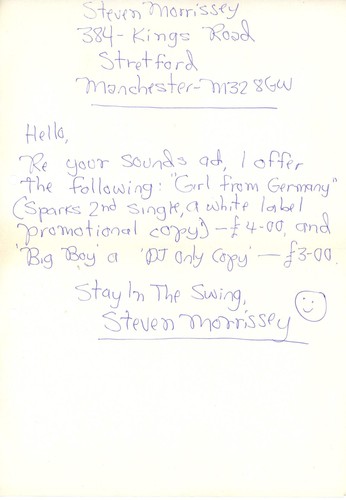 Steven Morrissey
384- Kings Road
Stretford
Manchester- M32 8GW
Hello,
Re your Sounds ad, I offer
the following: "Girl from Germany"
(Sparks 2nd single, a white label
promotional copy) - £4-00, and
'Big Boy' a 'DJ Only Copy' - £3-00.
Stay In The Swing,
Steven Morrissey